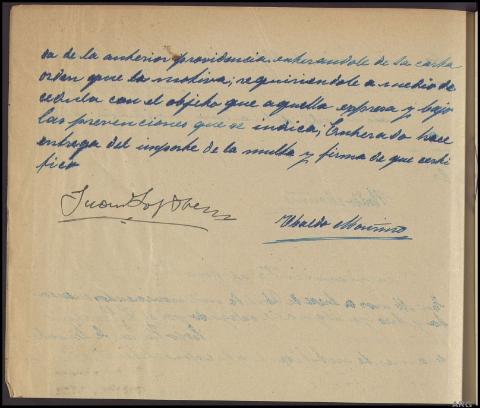 va de la anterior providencia enterándole de la carta
orden que la motiva; requiriendole a medio de
cedula con el objeto que aquella expresa y bajo
las prevenciones que se indica; Enterado hace
entrega del importe de la multa y firma de que certi
fico
Juan
Ubaldo
ARG